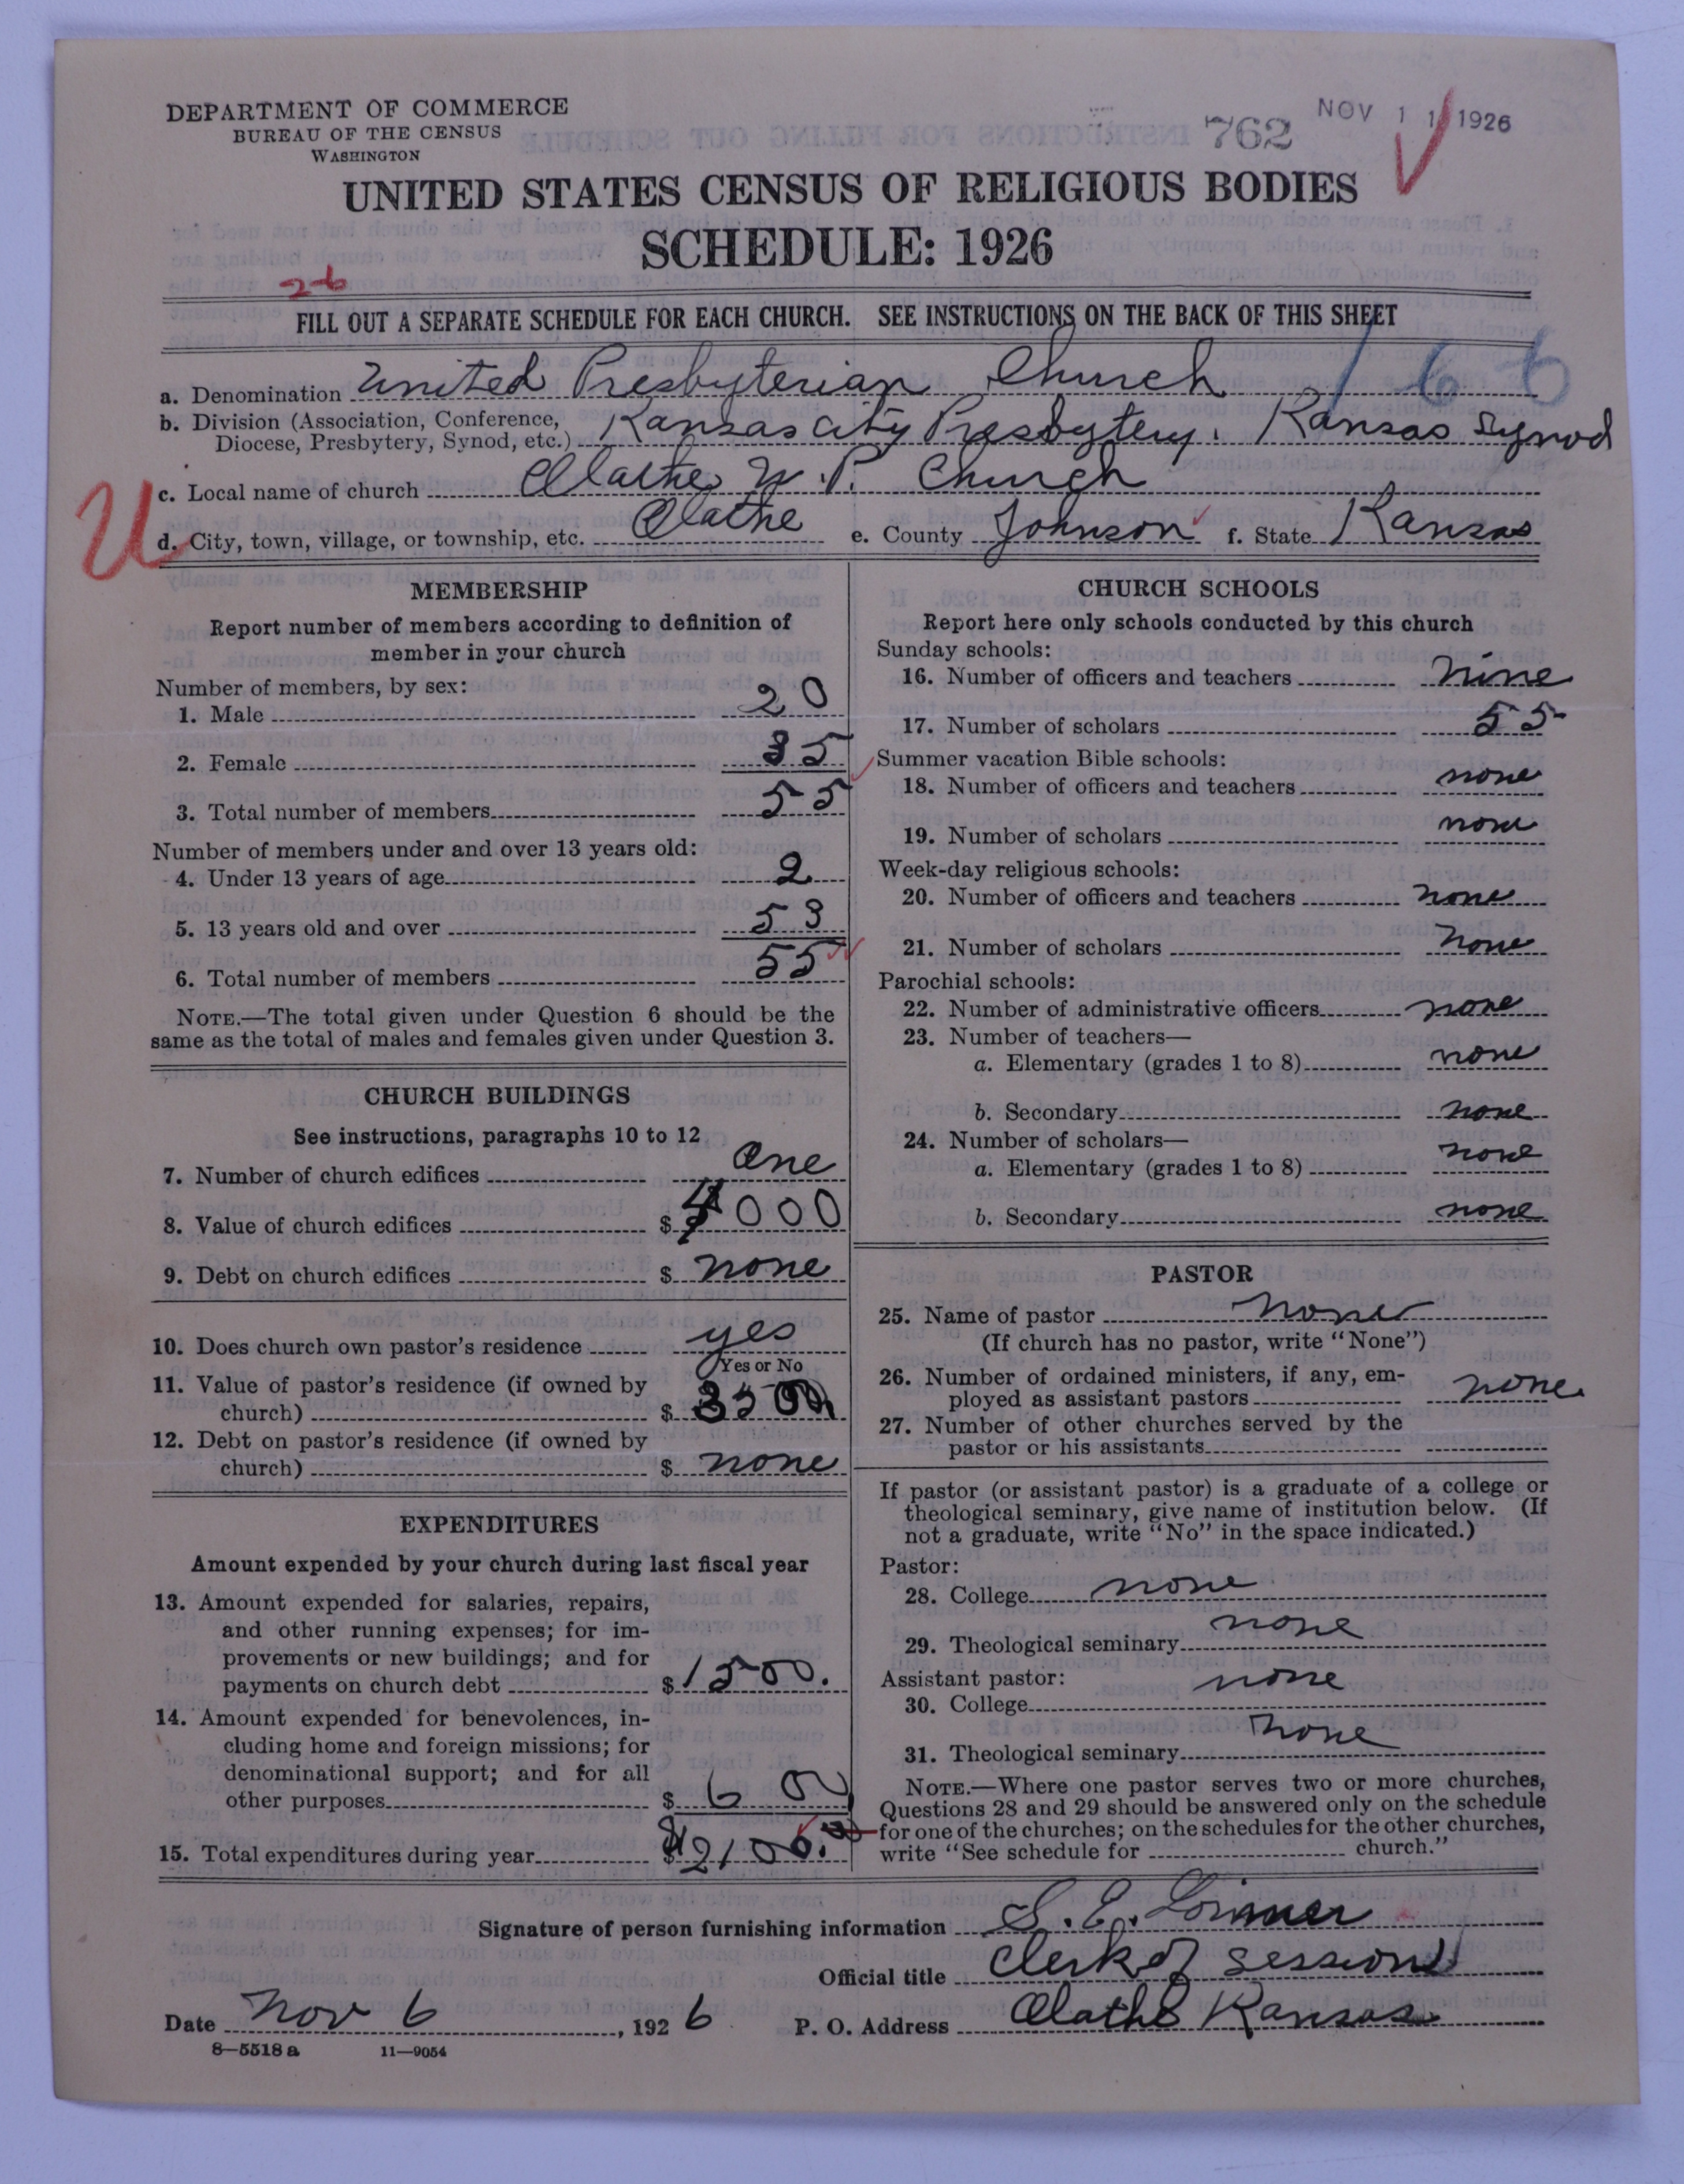 DEPARTMENT OF COMMERCE
BUREAU OF THE CENSUS
WASHINGTON
762
NOV 11 1926
UNITED STATES CENSUS OF RELIGIOUS BODIES
SCHEDULE: 1926
26
FILL OUT A SEPARATE SCHEDULE FOR EACH CHURCH. SEE INSTRUCTIONS ON THE BACK OF THIS SHEET
166
a. Denomination United Presbyterian Church
b. Division (Association, Conference, Diocese, Presbytery, Synod, etc.) Kansas City Presbytery. Kansas Synod
U
c. Local name of church Olathe U.P. Church
d. City, town, village, or township, etc. Olathe e. County Johnson f. State Kansas
MEMBERSHIP
Report number of members according to definition of
member in your church
Number of members, by sex:
1. Male 20
2. Female 35
3. Total number of members 55
Number of members under and over 13 years old:
4. Under 13 years of age 2
5. 13 years old and over 53
6. Total number of members 55
NOTE.—The total given under Question 6 should be the
same as the total of males and females given under Question 3.
CHURCH BUILDINGS
See instructions, paragraphs 10 to 12
7. Number of church edifices One
8. Value of church edifices $ 000
9. Debt on church edifices $ none
10. Does church own pastor's residence yes
Yes or No
11. Value of pastor's residence (if owned by
church) $ 3500
12. Debt on pastor's residence (if owned by
church) $ none
EXPENDITURES
Amount expended by your church during last fiscal year
13. Amount expended for salaries, repairs,
and other running expenses; for im-
provements or new buildings; and for
payments on church debt $ 1500.
14. Amount expended for benevolences, in-
cluding home and foreign missions; for
denominational support; and for all
other purposes $ 600
15. Total expenditures during year $ 2100.
CHURCH SCHOOLS
Report here only schools conducted by this church
Sunday schools:
16. Number of officers and teachers Nine
17. Number of scholars 55
Summer vacation Bible schools:
18. Number of officers and teachers none
19. Number of scholars none
Week-day religious schools:
20. Number of officers and teachers none
21. Number of scholars none
Parochial schools:
22. Number of administrative officers none
23. Number of teachers—
a. Elementary (grades 1 to 8) none
b. Secondary none
24. Number of scholars—
a. Elementary (grades 1 to 8) none
b. Secondary none
PASTOR
25. Name of pastor none
(If church has no pastor, write "None")
26. Number of ordained ministers, if any, em-
ployed as assistant pastors none
27. Number of other churches served by the
pastor or his assistants
If pastor (or assistant pastor) is a graduate of a college or
theological seminary, give name of institution below. (If
not a graduate, write "No" in the space indicated.)
Pastor:
28. College none
29. Theological seminary none
Assistant pastor:
30. College none
31. Theological seminary none
NOTE.—Where one pastor serves two or more churches,
Questions 28 and 29 should be answered only on the schedule
for one of the churches; on the schedules for the other churches,
write "See schedule for church."
Signature of person furnishing information S. E. Lorimer
Official title Clerk of Session
Date Nov 6, 1926 P. O. Address Olathe Kansas
8—5518a 11—9054